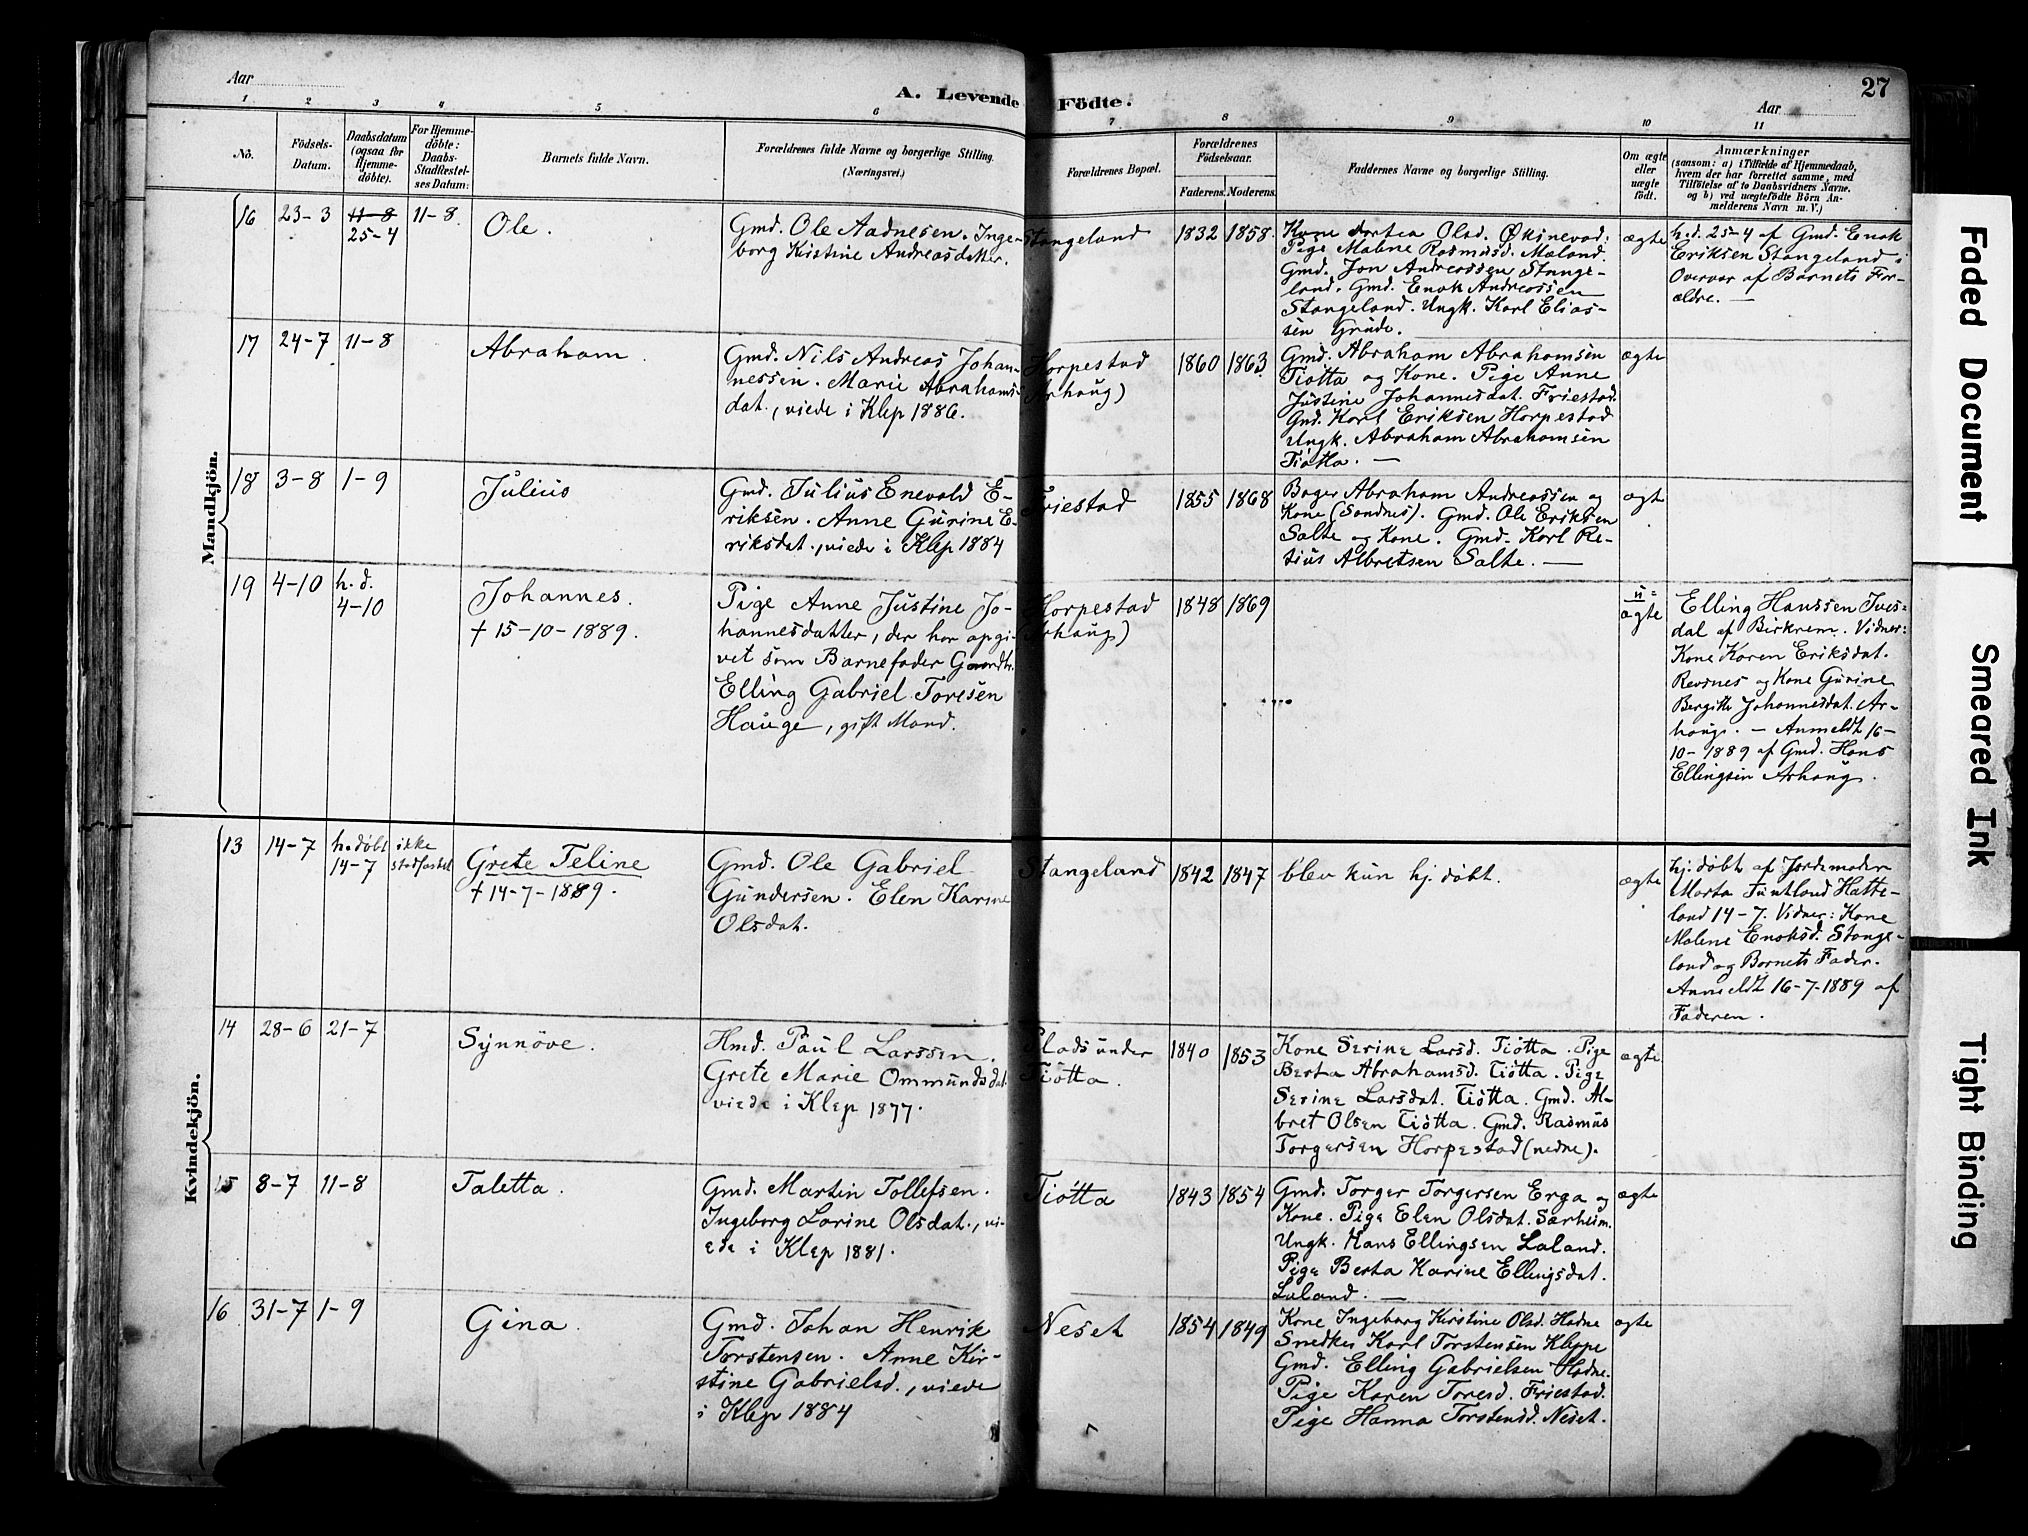 Aar
A. Levende Födte.
Aar
27
1 2 3 4 5 6 7 8 9 10 11
No.
Födsels-
Datum.
Daabsdatum
(ogsaa for
Hjemme-
döbte).
For Hjemme-
döbte:
Daabs-
Stadfæstel-
ses Datum:
Barnets fulde Navn.
Forældrenes fulde Navne og borgerlige Stilling.
(Næringsvei.)
Forældrenes Bopæl.
Forældrenes
Fødselsaar.
Faderens. Moderens.
Faddernes Navne og borgerlige Stilling.
Om ægte
eller
uægte
født.
Anmærkninger
(saasom: a) i Tilfælde af Hjemmedaab,
hvem der har forrettet samme, med
Tilføielse af to Daabsvidners Navne.
og b) ved uægtefödte Börn An-
melderens Navn m. V.)
Mandkjön.
16
23-3
11-8
25-4
11-8
Ole.
Gmd. Ole Aadnesen. Inge-
borg Kirstine Andreasdatter.
Stangeland
1832 1858
Kone Dortea Olsd. Øksnevad.
Pige Malene Rasmusd. Mæland.
Gmd. Jon Andreassen Stange-
land. Gmd. Enok Andreassen
Stangeland. Ungk. Karl Elias-
sen Grude.
ægte
h.d. 25-4 af Gmd. Enok
Eriksen Stangeland i
Overvær af Barnets For-
ældre. —
17
24-7
11-8
Abraham.
Gmd. Nils Andreas Johan-
nessen. Marie Abrahams-
dat., viede i Klep 1886.
Horpestad
(Arhaug)
1860 1863
Gmd. Abraham Abrahamsen
Tiøtta og Kone. Pige Anne
Justine Johannesdat. Friestad.
Gmd. Karl Eriksen Horpestad
Ungk. Abraham Abrahamsen
Tiøtta. —
ægte
18
3-8
1-9
Julius
Gmd. Julius Enevald E-
riksen. Anne Gurine E-
riksdat., viede i Klep 1884
Friestad
1855 1868
Bager Abraham Andreassen og
Kone (Sandnes). Gmd. Ole Eriksen
Salte og Kone. Gmd. Karl Re-
sius Albretsen Salte. —
ægte
19
4-10
h. d.
4-10
Johannes.
† 15-10-1889.
Pige Anne Justine Jo-
hannesdatter, der har opgi-
vet som Barnefader Gaardbr.
Elling Gabriel Toresen
Hauge, gift Mand.
Horpestad
(Arhaug)
1848 1869
u=
ægte
Elling Hanssen Ives-
dal af Birkrem. Vidner:
Kone Karen Eriksdat.
Revsnes og Kone Gurine
Bergitte Johannesdat. Ar-
haug. — Anmeldt 16-
10-1889 af Gmd. Hans
Ellingsen Arhaug.
Kvindekjön.
13
14-7
h. døbt
14-7
ikke
stadfæstet
Grete Teline
† 14-7-1889.
Gmd. Ole Gabriel
Gundersen. Elen Karine
Olsdat.
Stangeland
1842 1847
blev kun hj. døbt.
ægte
hj. døbt af Jordemoder
Marta Tuntland Hatte-
land 14-7. Vidner: Kone
Malene Enoksd. Stange-
land og Barnets Fader.
Anmeldt 16-7-1889 af
Faderen.
14
28-6
21-7
Synnøve.
Hmd. Paul Larssen.
Grete Marie Ommundsdat.
viede i Klep 1877.
Plads under
Tiøtta.
1840 1853
Kone Serine Larsd. Tiøtta. Pige
Berta Abrahamsd. Tiøtta. Pige
Serine Larsdat. Tiøtta. Gmd. Al-
bret Olsen Tiøtta. Gmd. Rasmus
Torgersen Horpestad (nedre).
ægte
15
8-7
11-8
Taletta.
Gmd. Martin Tollefsen.
Ingeborg Lorine Olsdat., vi-
ede i Klep 1881.
Tiøtta
1843 1854
Gmd. Torger Torgersen Erga og
Kone. Pige Elen Olsdat. Særheim.
Ungk. Hans Ellingsen Laland.
Pige Berta Karine Ellingsdat.
Laland. —
ægte
16
31-7
1-9
Gina.
Gmd. Johan Henrik
Torstensen. Anne Kir-
stine Gabrielsd., viede
i Klep 1884
Neset
1854 1849
Kone Ingeborg Kirstine Olsd. Hodne
Smedker Karl Torstensen Kleppe
Gmd. Elling Gabrielsen Hodne.
Pige Karen Toresd. Friestad.
Pige Hanna Torstensd. Neset.
ægte
Faded Document
Smeared Ink
Tight Binding